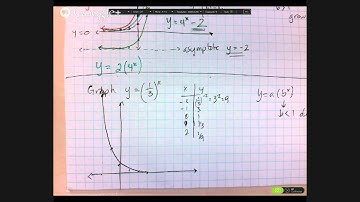 y=0
y=4ˣ-2
asymptote y=-2
y=2(4ˣ)
Graph y=(1/3)ˣ
x | y
-2 | (1/3)⁻²=3²=9
-1 | 3
0 | 1
1 | 1/3
2 | 1/9
y=a(bˣ)
b<1